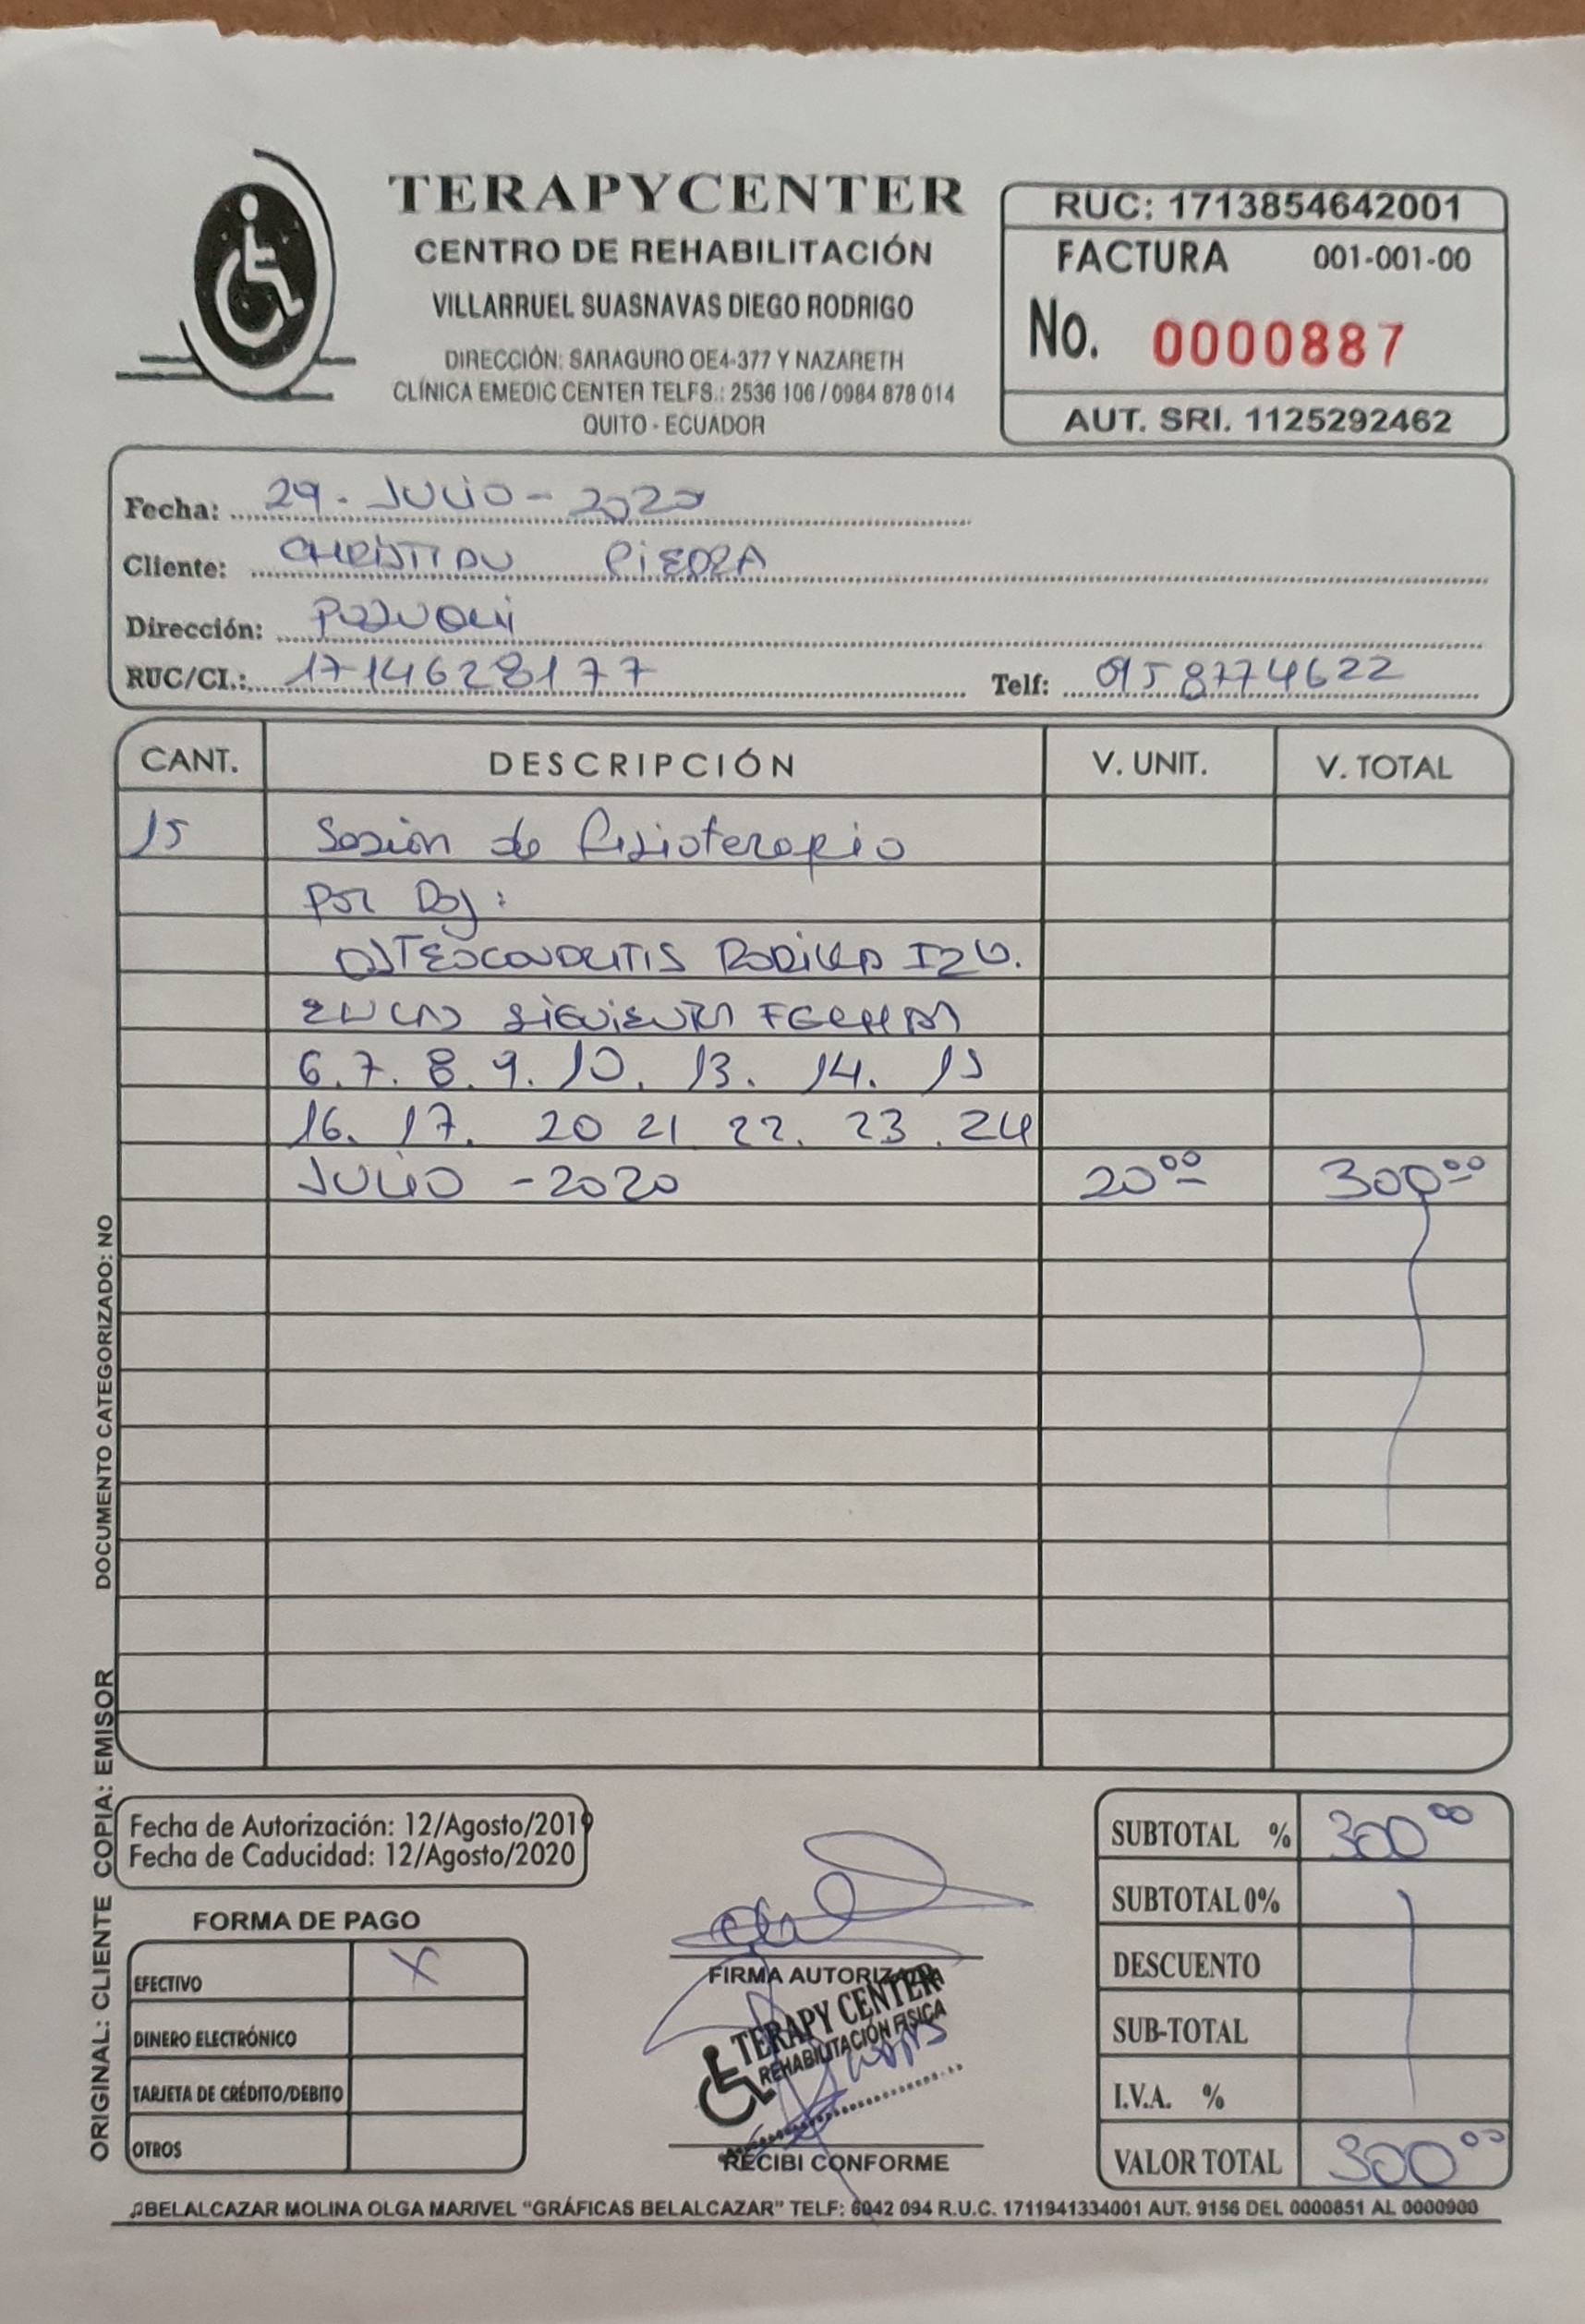 TERAPYCENTER
CENTRO DE REHABILITACIÓN
VILLARRUEL SUASNAVAS DIEGO RODRIGO
DIRECCIÓN: SARAGURO OE4-377 Y NAZARETH
CLÍNICA EMEDIC CENTER TELFS.: 2536 106 / 0984 878 014
QUITO - ECUADOR
RUC: 1713854642001
FACTURA 001-001-00
No. 0000887
AUT. SRI. 1125292462
Fecha: 29 - JULIO - 2020
Cliente: CHRISTIAN PIEDRA
Dirección:
RUC/CI.: 1714628177 Telf: 0958774622
CANT. DESCRIPCIÓN V. UNIT. V. TOTAL
15 Sesión de fisioterapia
Por Dg:
OSTEOCONDRITIS RODILLA IZQ.
EN LAS SIGUIENTES FECHAS
6. 7. 8. 9. 10. 13. 14. 15
16. 17. 20 21 22. 23. 24
JULIO - 2020 20.00 300.00
DOCUMENTO CATEGORIZADO: NO
ORIGINAL: CLIENTE COPIA: EMISOR
Fecha de Autorización: 12/Agosto/2019
Fecha de Caducidad: 12/Agosto/2020
FORMA DE PAGO
EFECTIVO X
DINERO ELECTRÓNICO
TARJETA DE CRÉDITO/DEBITO
OTROS
FIRMA AUTORIZADA
TERAPY CENTER
REHABILITACIÓN FISICA
RECIBI CONFORME
SUBTOTAL % 300.00
SUBTOTAL 0%
DESCUENTO
SUB-TOTAL
I.V.A. %
VALOR TOTAL 300.00
BELALCAZAR MOLINA OLGA MARIVEL "GRÁFICAS BELALCAZAR" TELF: 6042 094 R.U.C. 1711941334001 AUT. 9156 DEL 0000851 AL 0000900